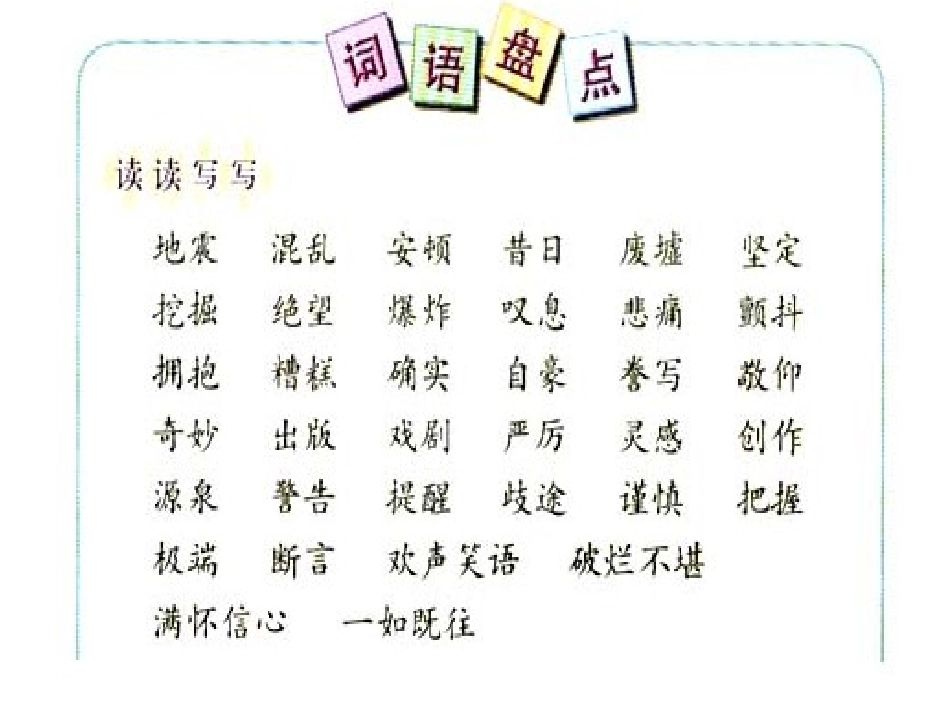 词语盘点
读读写写
地震 混乱 安顿 昔日 废墟 坚定
挖掘 绝望 爆炸 叹息 悲痛 颤抖
拥抱 糟糕 确实 自豪 誊写 敬仰
奇妙 出版 戏剧 严厉 灵感 创作
源泉 警告 提醒 歧途 谨慎 把握
极端 断言 欢声笑语 破烂不堪
满怀信心 一如既往